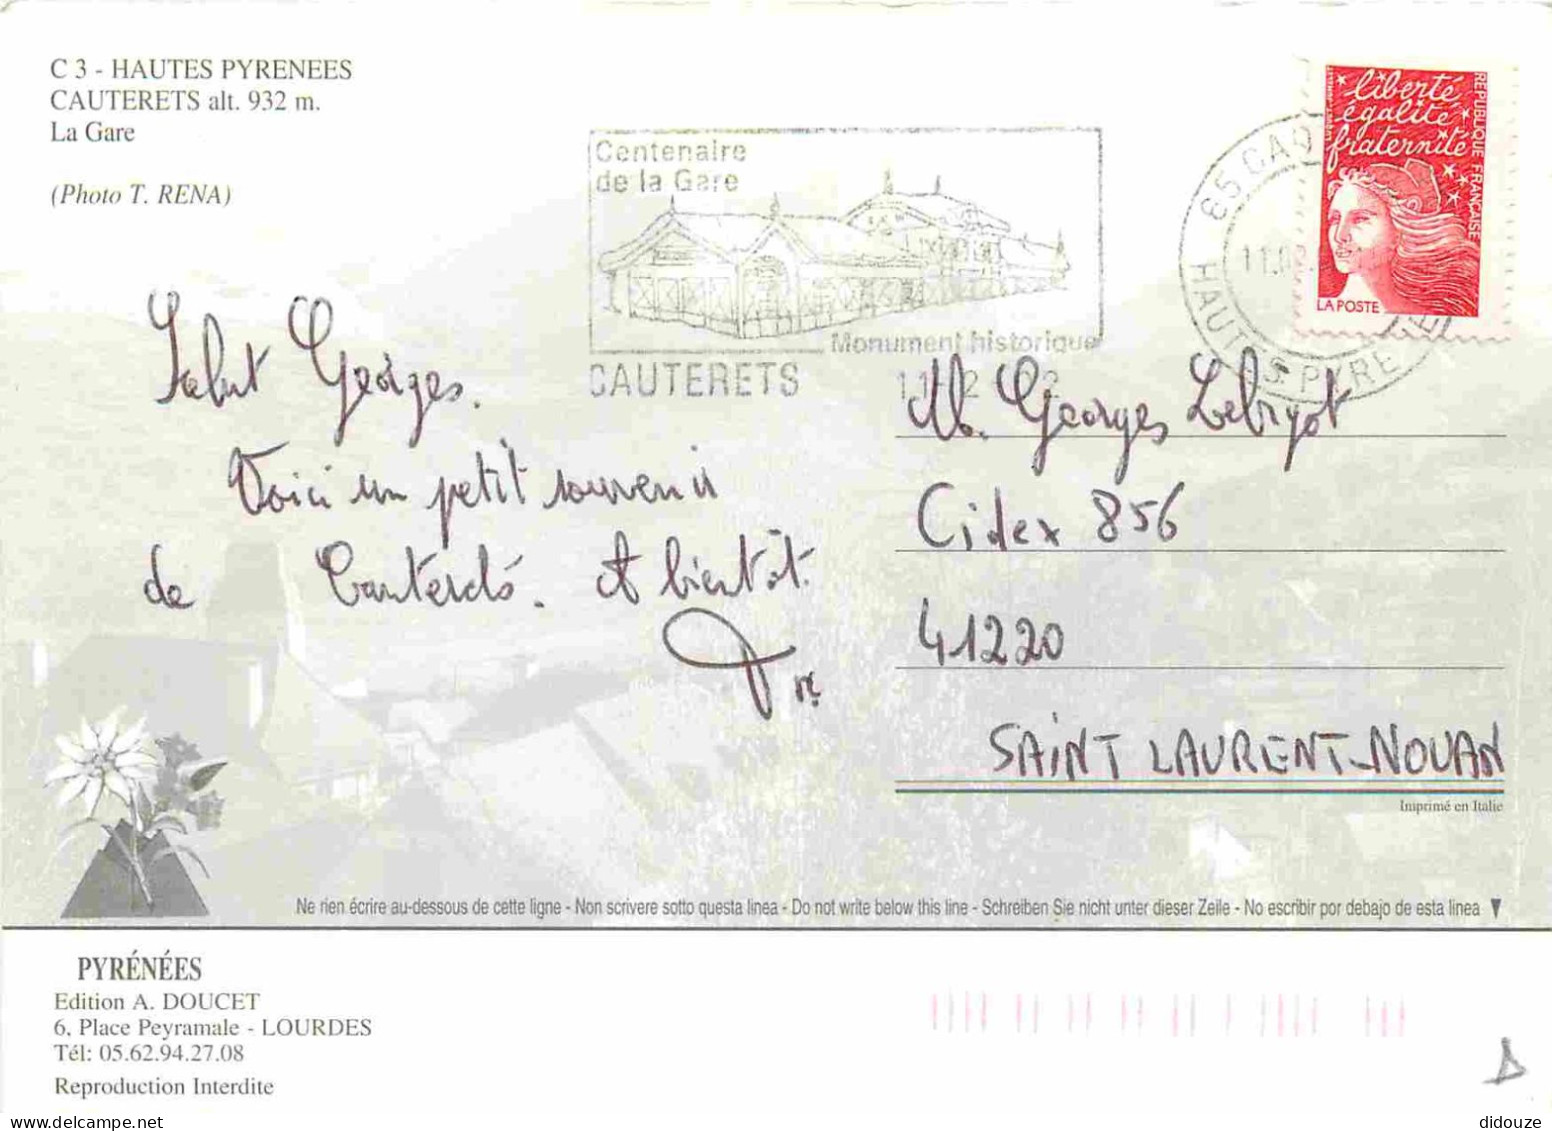 C 3 - HAUTES PYRENEES
CAUTERETS alt. 932 m.
La Gare
(Photo T. RENA)
Centenaire
de la Gare
Monument historique
CAUTERETS
liberté,
égalité
fraternité
REPUBLIQUE FRANÇAISE
LA POSTE
65 CAU
HAUTES PYRE
Salut Georges.
Voici un petit souvenir
de Cauterets. A bientôt.
M. Georges Lebigot
Cidex 856
41220
SAINT LAURENT-NOUAN
Imprimé en Italie
Ne rien écrire au-dessous de cette ligne - Non scrivere sotto questa linea - Do not write below this line - Schreiben Sie nicht unter dieser Zeile - No escribir por debajo de esta linea
PYRÉNÉES
Edition A. DOUCET
6, Place Peyramale - LOURDES
Tél: 05.62.94.27.08
Reproduction Interdite
didouze